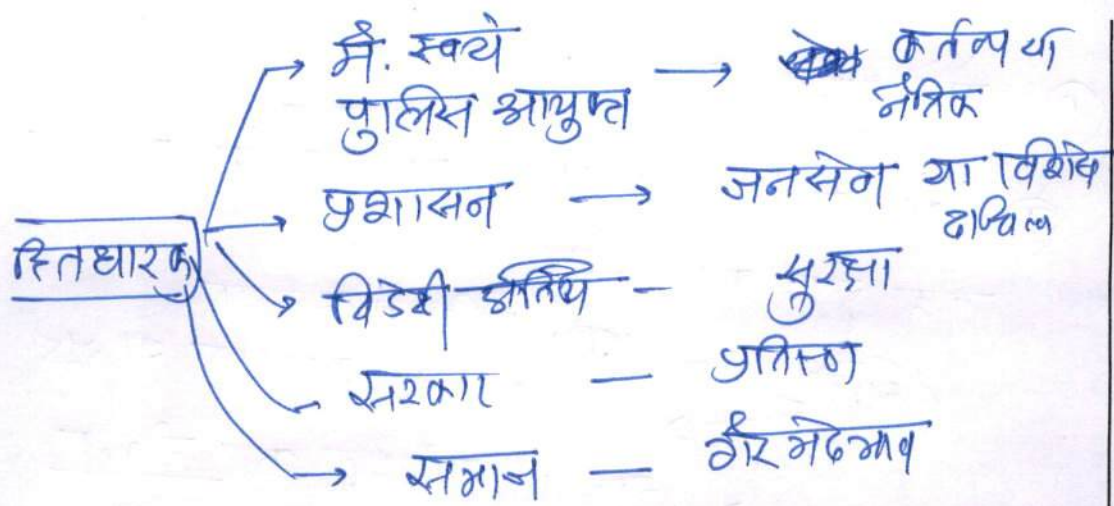 मैं. स्वयं
पुलिस आयुक्त → कर्तव्य या
नैतिक
प्रशासन → जनसेवा या विशेष
दायित्व
हितधारक
विदेशी अतिथि - सुरक्षा
सरकार - प्रतिष्ठा
समाज - गैर भेदभाव